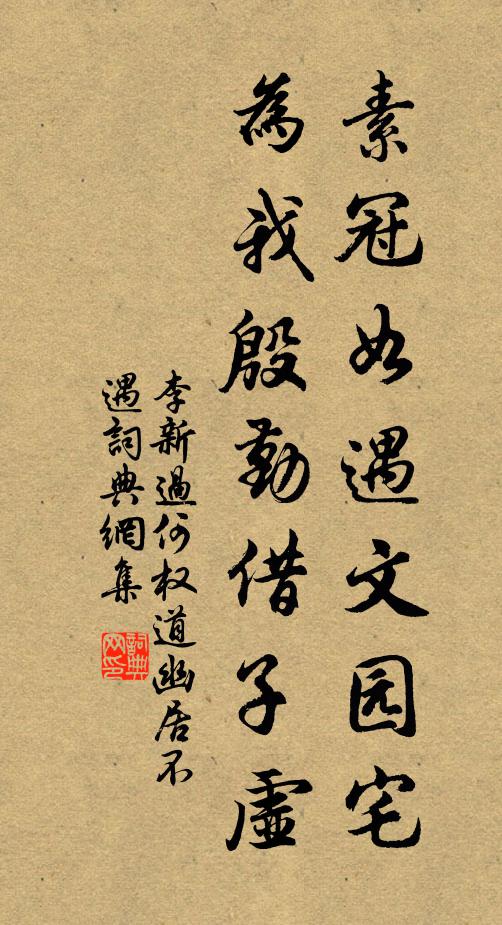 素冠如遇文园宅
為我殷勤借子虛
李新過何权道幽居不
遇詞典網集
詞典网印